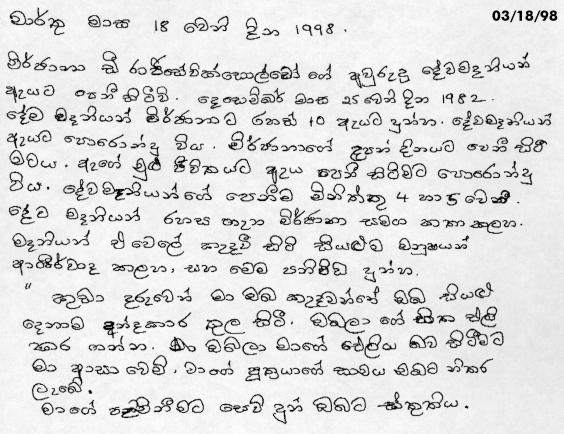 මාර්තු මාස 18 වෙනි දින 1998.
03/18/98
මිර්ජානා ගේ අවුරුදු දේවමෑණියන්
ඇයට පෙනී සිටිවි. දෙසැම්බර් මාස 25 වෙනි දින 1982.
දේව මෑණියන් මිර්ජානාට රහස් 10 ඇයට දුන්හ. දේවමෑණියන්
ඇයට පොරොන්දු විය. මිර්ජානාගේ උපන් දිනයට පෙනී සිටි
මටය. ඇගේ මුලු ජීවිතයට ඇය පෙනී සිටිමට පොරොන්දු
විය. දේවමෑණියන්ගේ පෙනීම මිනිත්තු 4 හා 5 වෙනි.
දේව මෑණියන් රහස ගැන මිර්ජානා සමග කතා කලහ.
මෑණියන් ඒ වෙලේ කැදවී සිටි සියළුම මනුෂයන්
ආශිර්වාද කලහ, සහ මෙම පනිවිඩ දුන්හ.
" කුඩා දරුවෙන් මා ඔබ කැදවන්නේ ඔබ සියළු
දෙනාම අන්දකාර තුල සිටි. ඔබලා ගේ හිත එලි
කර ගන්න. මා ඔබලා මාගේ එලිය බව සිටීමට
මා ආසා වෙමි. මාගේ පුත්‍රයාගේ සාමය ඔබට නිතර
ලැබේ.
මාගේ පැමිනීමට සෙවි දුන් ඔබට ස්තුතිය.